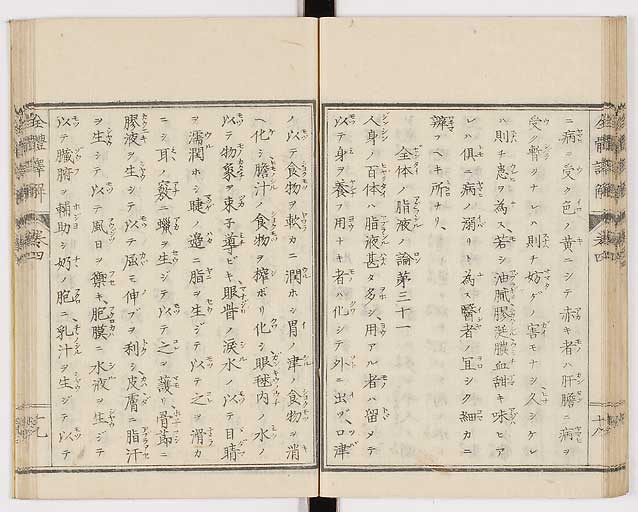 ニ病ヲ受ク色ノ黄ニシテ赤キ者ハ肝膽ニ病ヲ
受ク暫クナレハ則チ妨ゲノ害モナシ久シケレ
ハ則チ患ヲ為ス若シ油膩膠涎膿血甜キ味ヒア
レハ俱ニ病ノ溺リト為ス醫者ノ宜シク細カニ
辯フヘキ所ナリ
全体ノ脂液ノ論第三十一
人身ノ百体ハ脂液甚タ多シ用アル者ハ留メテ
以テ身ヲ養フ用ナキ者ハ化シテ外ニ出ヅ口津
ノ以テ食物ヲ軟カニ潤ホシ胃ノ津ノ食物ヲ消
ヘ化シ膽汁ノ食物ヲ搾ホリ化シ眼毬内ノ水ノ
以テ物象ヲ束子導ビキ眼胞ノ淚水ノ以テ目睛
ヲ濡潤ホシ睫ノ邉ニ脂ヲ生ジテ以テ之ヲ滑カ
ニシ耳ノ竅ニ蠟ヲ生シテ以テ之ヲ護リ骨節ニ
膠液ヲ生シテ以テ屈モ伸ブヲ利シ皮膚ニ脂汗
ヲ生シテ以テ風日ヲ禦キ胞膜ニ水液ヲ生シテ
以テ臟腑ヲ輔助シ奶ノ胞ニ乳汁ヲ生シテ以テ
全體譯解 卷四 十八
全體譯解 卷四 十九